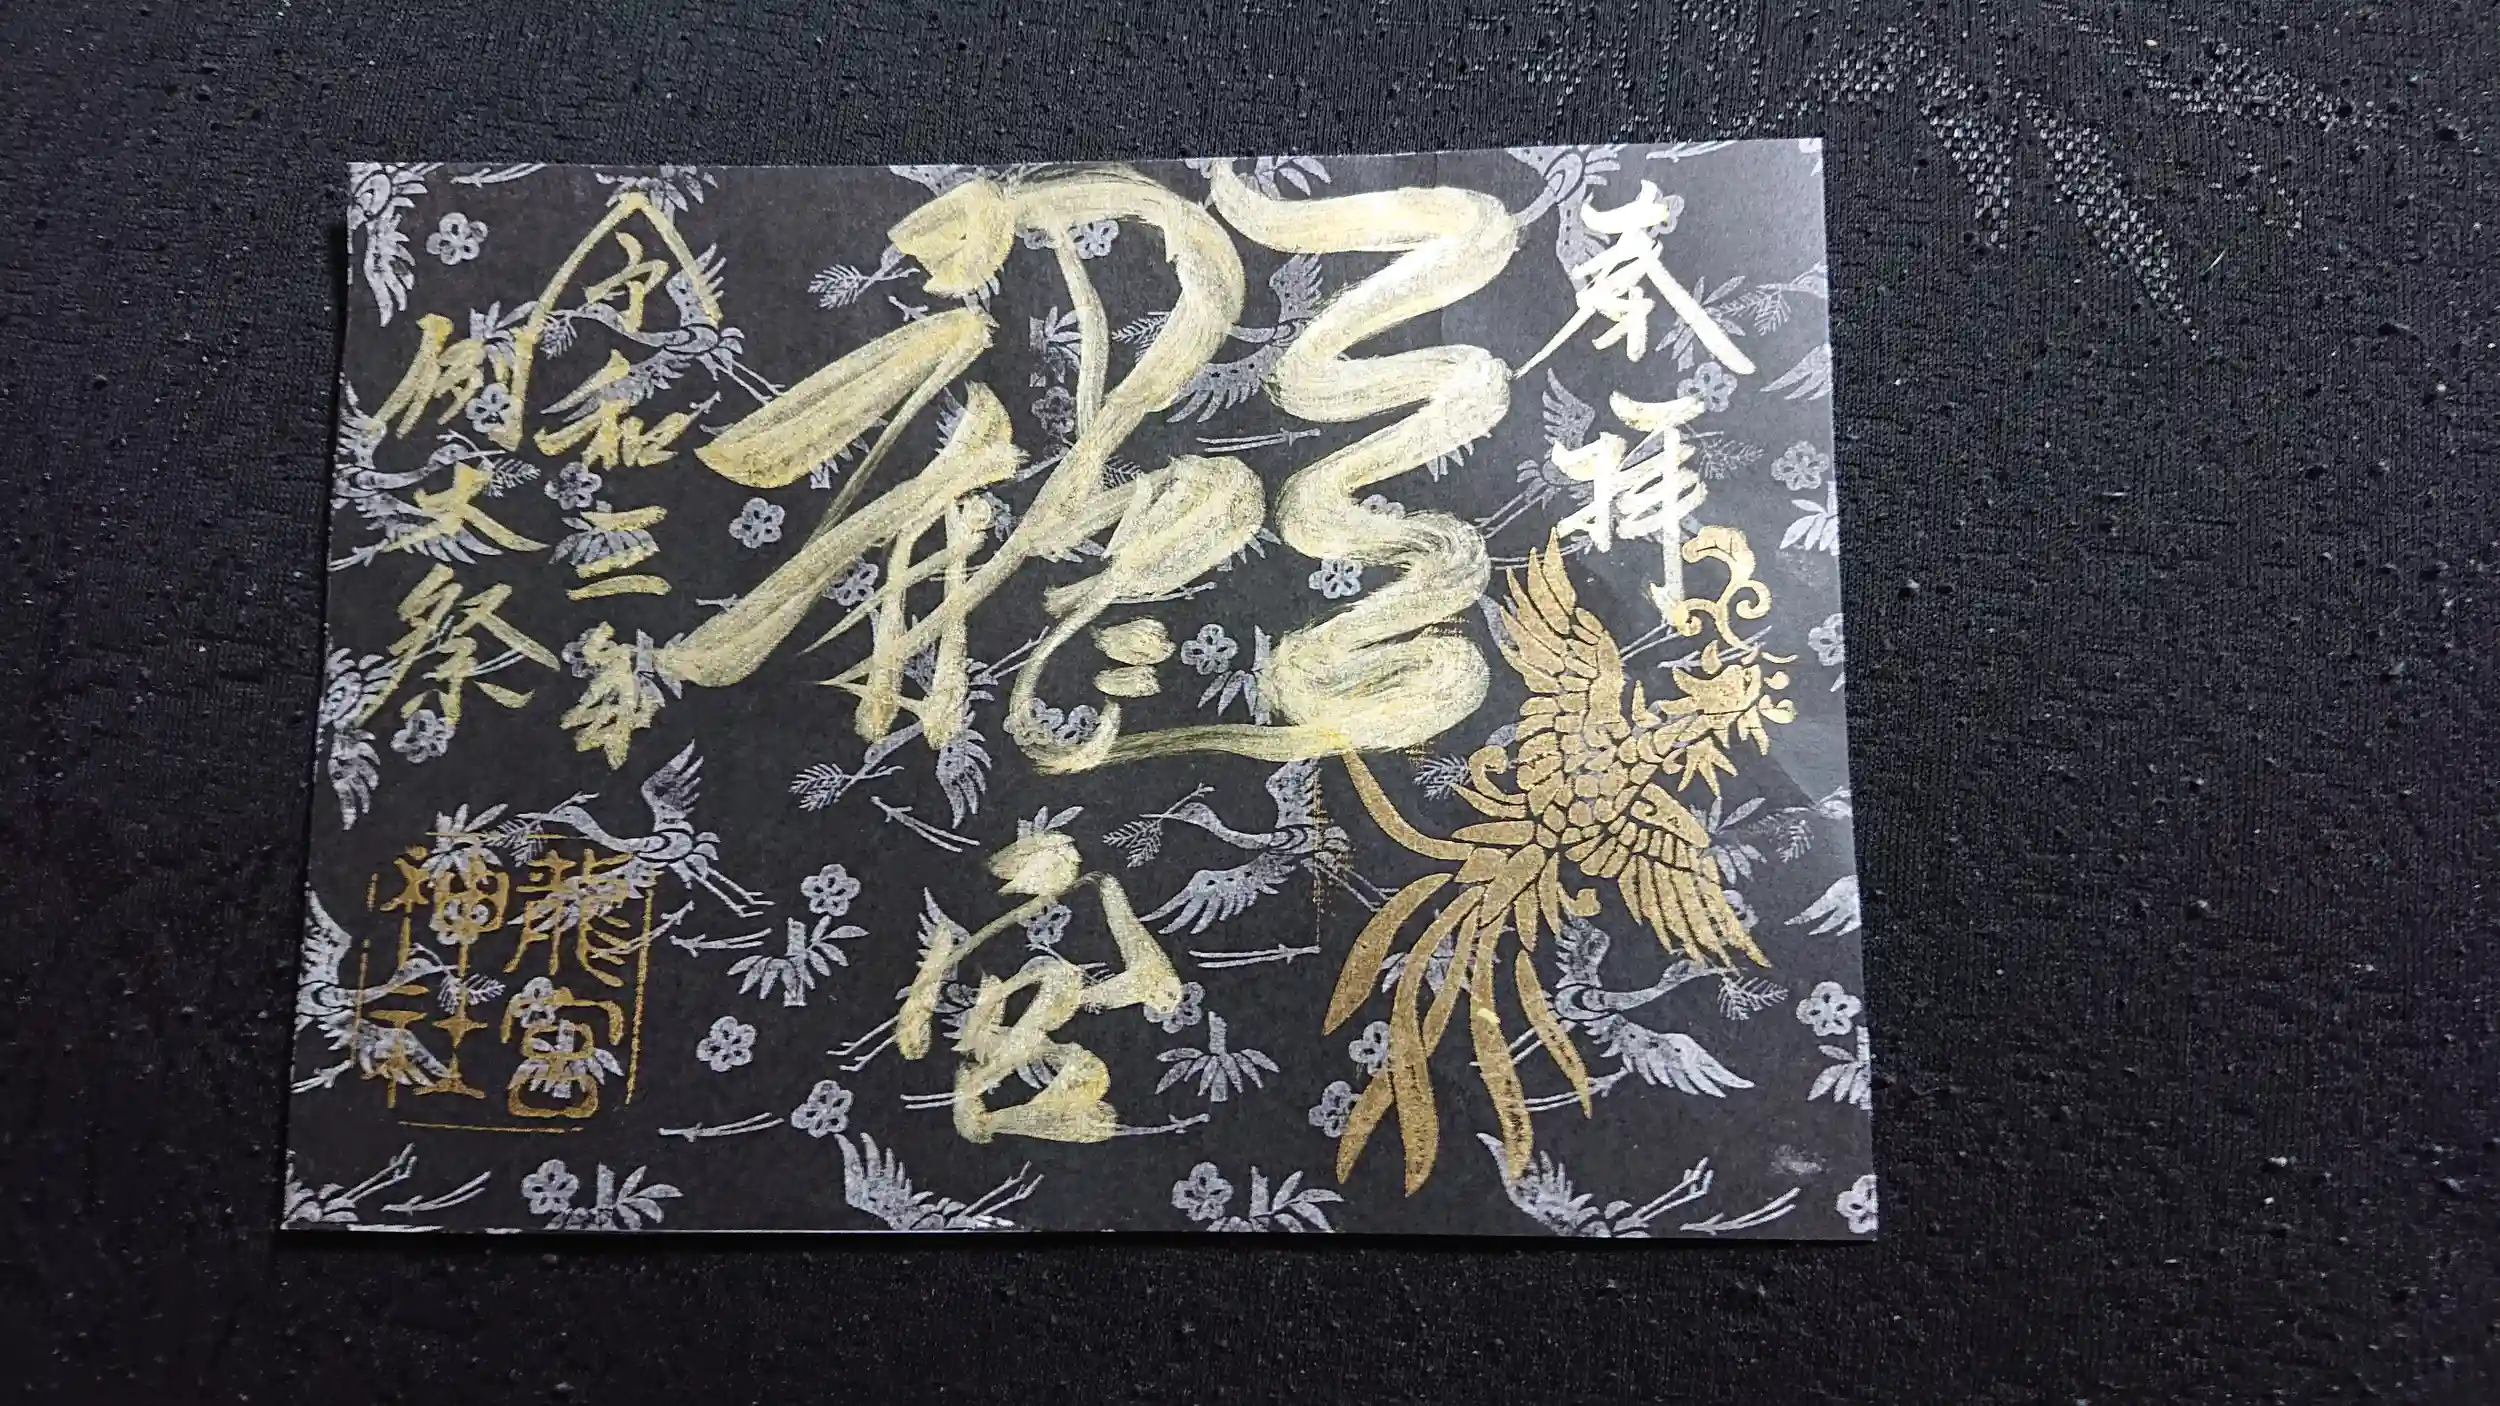 奉拝
龍宮
令和三年
例大祭
龍宮
神社